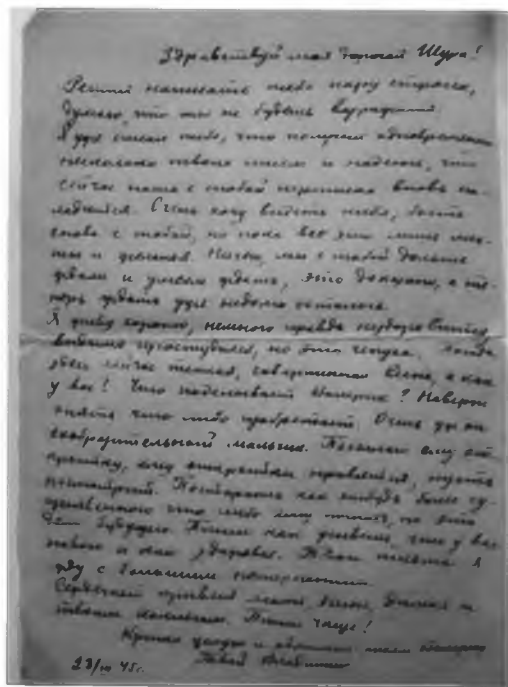 Здравствуй моя дорогая Шура!
Решил написать тебе пару строчек,
думаю, что ты не будешь
Я уже писал тебе, что получил одновременно
несколько твоих писем и надеюсь, что
сейчас наша с тобой переписка вновь на-
ладится. Очень хочу видеть тебя, быть
снова с тобой, но пока все это лишь меч-
ты и желания. Ничего, мы с тобой дольше
ждали и умеем ждать, это доказано, а те-
перь ждать уже недолго осталось.
Я живу хорошо, немного правда
видимо простудился, но это чепуха. Погода
здесь сейчас теплая, совершенная весна, а как
у вас! Что поделывает Валерик? Наверное
опять что либо изобретает. Очень уж он
изобретательный мальчик. Посылаю ему от-
крытку, ему открытки нравятся, пусть
посмотрит. Постараюсь как нибудь более су-
щественного что либо ему послать, но это
будущее. Пиши как живёшь, что у вас
нового и как здоровье. Твои письма я
жду с большим нетерпением.
Сердечный привет маме,
твоим Пиши чаще!
Крепко целую и обнимаю
Твой
23/III 45г.